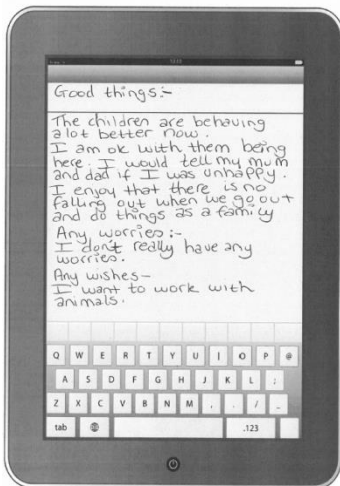 12:34
Good things:-
The children are behaving
a lot better now.
I am ok with them being
here. I would tell my mum
and dad if I was unhappy.
I enjoy that there is no
falling out when we go out
and do things as a family
Any worries:-
I don't really have any
worries.
Any wishes-
I want to work with
animals.
Q W E R T Y U I O P @
A S D F G H J K L ;
Z X C V B N M , . / _
tab .123